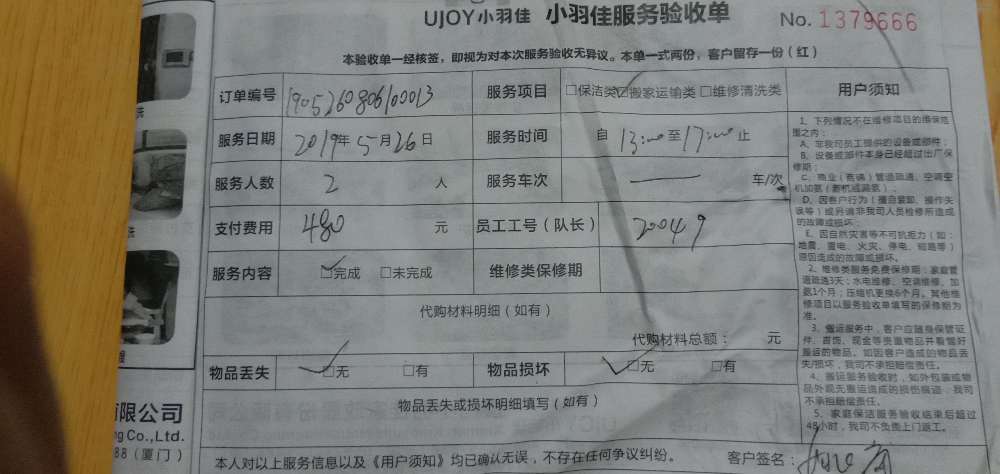 UJOY小羽佳 小羽佳服务验收单 No. 1379666
本验收单一经核签，即视为对本次服务验收无异议。本单一式两份，客户留存一份（红）
订单编号 1905260806100013 服务项目 □保洁类☑搬家运输类 □维修清洗类
服务日期 2019年5月26日 服务时间 自 13:00 至 17:00 止
服务人数 2 人 服务车次 — 车/次
支付费用 480 元 员工工号（队长） 20049
服务内容 ☑完成 □未完成 维修类保修期
代购材料明细（如有）
代购材料总额： 元
物品丢失 ☑无 □有 物品损坏 ☑无 □有
物品丢失或损坏明细填写（如有）
本人对以上服务信息以及《用户须知》均已确认无误，不存在任何争议纠纷。 客户签名：
用户须知
1、下列情况不在维修项目的维保范
围之内：
A、非我司员工提供的设备或部件；
B、设备或部件本身已经超过出厂保
修期；
C、商业（商铺）管道疏通、空调空
机加氨（新机或漏氨）；
D、因客户行为（擅自装卸、操作失
误等）或另请非我司人员检修所造成
的故障或损坏；
E、因自然灾害等不可抗拒力（如：
地震、雷电、火灾、停电、短路等）
原因造成的故障或损坏。
2、维修类服务免费保修期：家庭管
道疏通3天；水电维修、空调维修、加
氨1个月；压缩机更换6个月。其他维
修项目以服务验收单填写的保修期为
准。
3、搬运服务中，客户应随身保管证
件、首饰、现金等贵重物品并看管好
搬运的物品。如因客户造成的物品丢
失/损坏，我司不承担赔偿责任。
4、搬运服务验收时，如外包装或物
品外观无搬运造成的损伤痕迹，我司
不承担赔偿责任。
5、家庭保洁服务验收结束后超过
48小时，我司不负责上门返工。
洗
洗
有限公司
ng Co.,Ltd.
88（厦门）